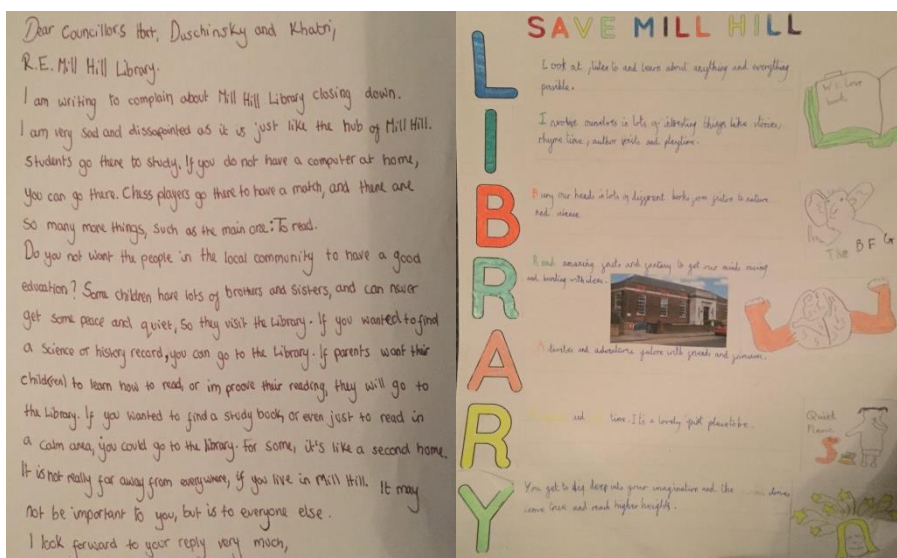 Dear Councillors Hart, Duschinsky and Khatri,
R.E. Mill Hill Library.
I am writing to complain about Mill Hill Library closing down.
I am very sad and dissapointed as it is just like the hub of Mill Hill.
Students go there to study. If you do not have a computer at home,
you can go there. Chess players go there to have a match, and there are
so many more things, such as the main one: To read.
Do you not want the people in the local community to have a good
education? Some children have lots of brothers and sisters, and can never
get some peace and quiet, so they visit the Library. If you wanted to find
a science or history record, you can go to the Library. If parents want their
child(ren) to learn how to read, or improove their reading, they will go to
the Library. If you wanted to find a study book, or even just to read in
a calm area, you could go to the library. For some, it's like a second home.
It is not really far away from everywhere, if you live in Mill Hill. It may
not be important to you, but is to everyone else.
I look forward to your reply very much,
SAVE MILL HILL
LIBRARY
Look at, listen to and learn about anything and everything
possible.
Involve ourselves in lots of interesting things like stories,
rhyme time, author visits and playtime.
Bury our heads in lots of different books from fiction to nature
and science.
Read amazing facts and fantasy to get our minds racing
and bursting with ideas.
Activities and adventures galore with friends and
and time. It's a lovely place to be.
You get to dig deep into your imagination and the
and reach higher heights.
We Love
books
The BFG
Quiet
Please